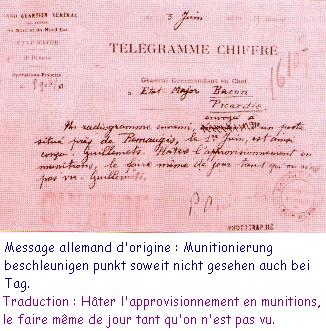 GRAND QUARTIER GÉNÉRAL
du Nord et du Nord-Est
ÉTAT-MAJOR
3e BUREAU
le 3 Juin
TÉLÉGRAMME CHIFFRÉ
Général Commandant en Chef
à Etat Major Bacon
Picardie
Un radiogramme ennemi, envoyé à un poste
situé près de Remaugis, le 1er Juin, est ainsi
conçu : Guillemets. Hâtez l'approvisionnement en
munitions, le faire même de jour tant qu'on n'est
pas vu. Guillemets.
PHOTOGRAP.HE
Message allemand d'origine : Munitionierung
beschleunigen punkt soweit nicht gesehen auch bei
Tag.
Traduction : Hâter l'approvisionnement en munitions,
le faire même de jour tant qu'on n'est pas vu.